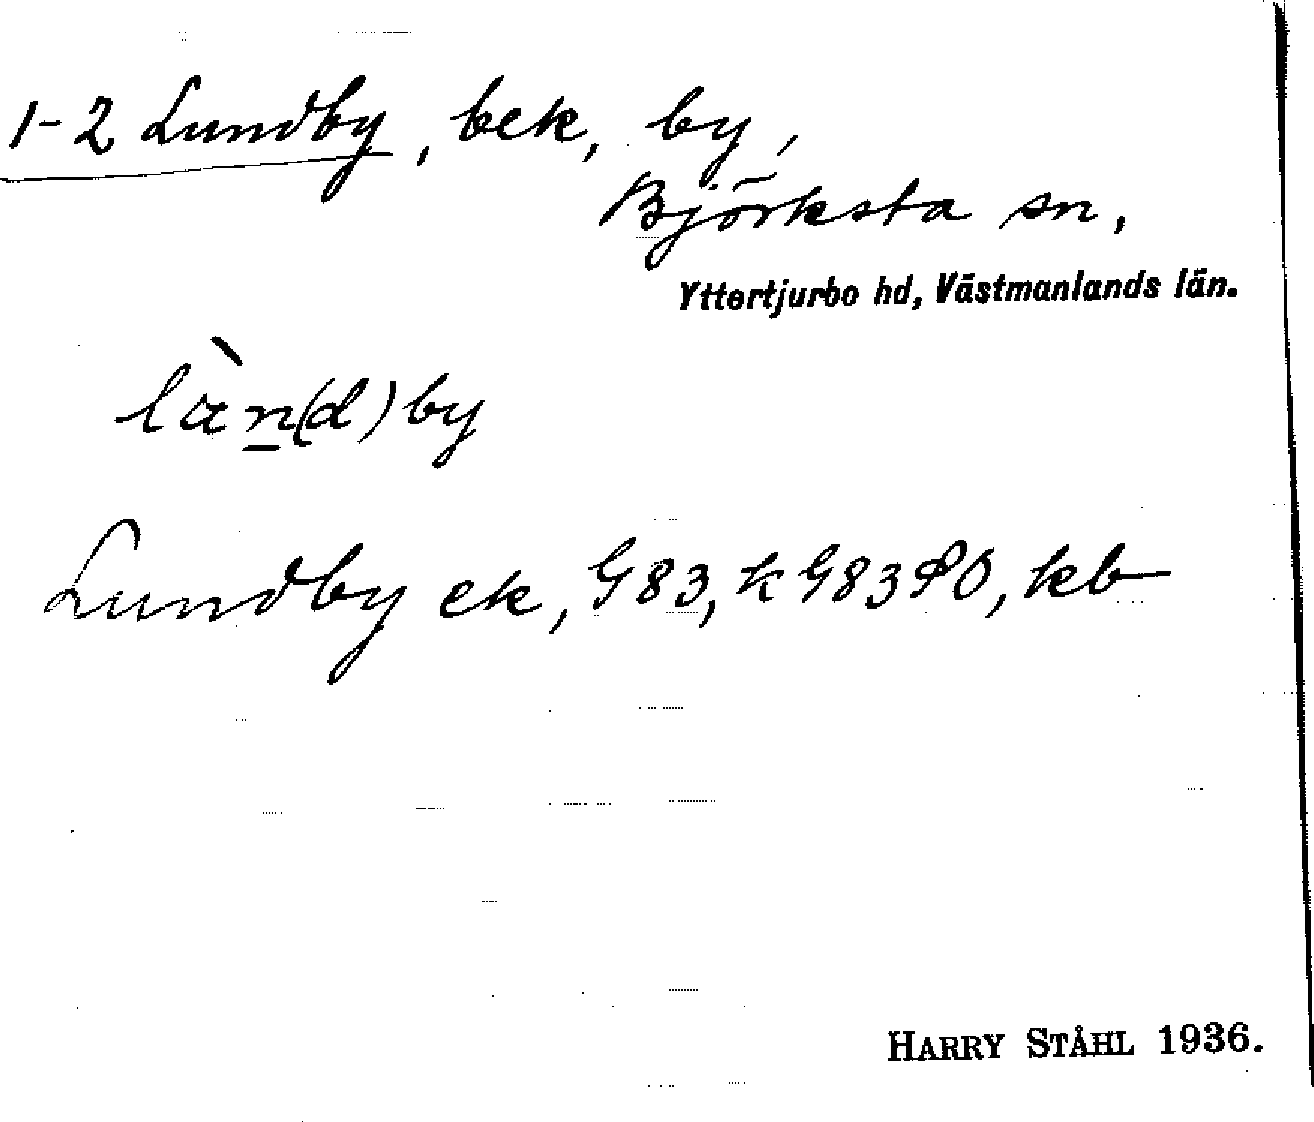 1-2 Lundby, bek, by,
Björksta sn,
Yttertjurbo hd, Västmanlands län.
làn(d)by
Lundby ek, G83, k G83 80, kb
HARRY STÅHL 1936.